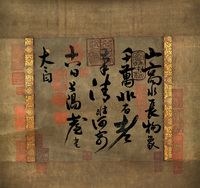 山高水長物象
千萬非有老
筆清壯何可窮
十八日上陽臺書
太白